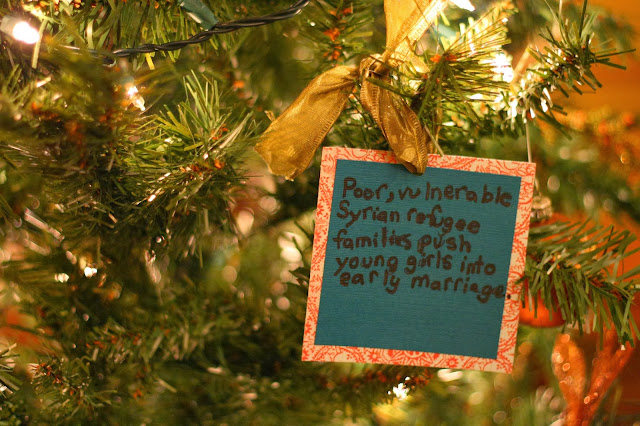 Poor, vulnerable
Syrian refugee
families push
young girls into
early marriage